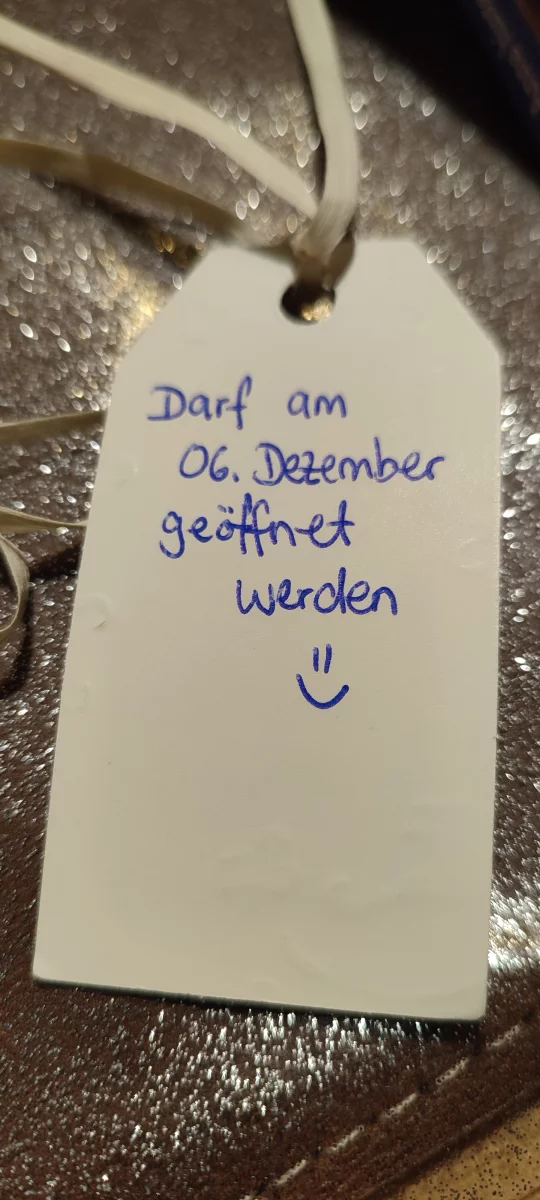 Darf am
06. Dezember
geöffnet
werden